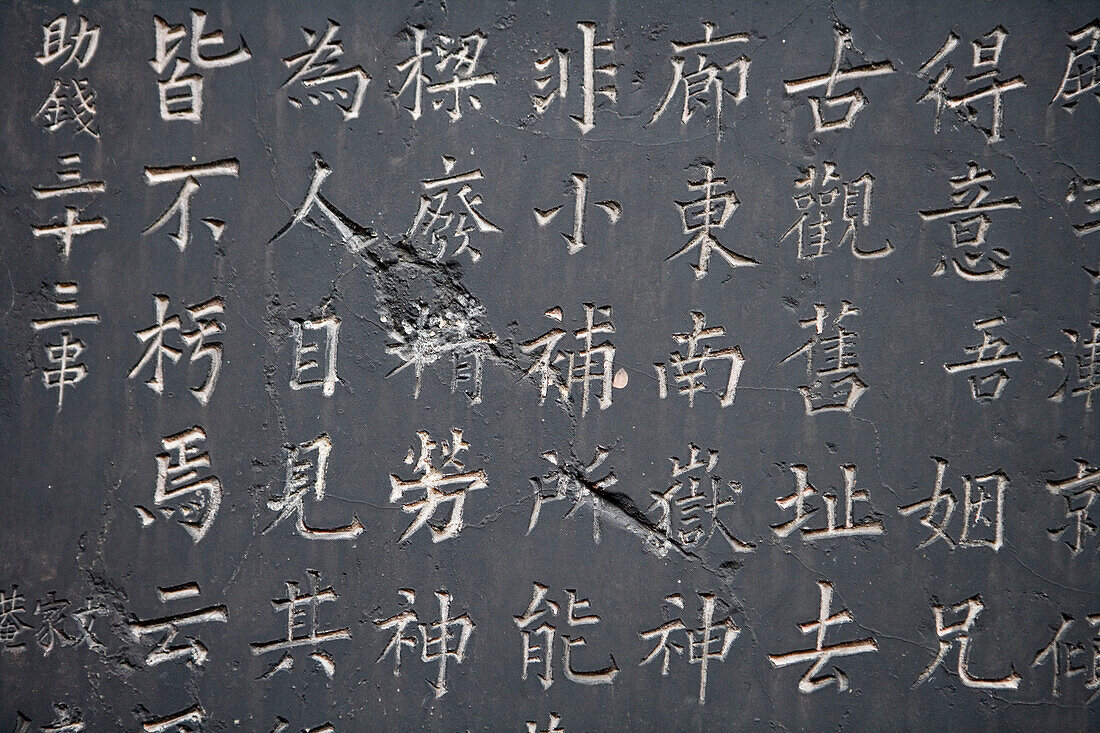 京傾
得意吾姻兄
古觀舊址去
廊東南嶽神
非小補所能
樑廢精勞神
為人目見其
皆不朽焉云
助錢三十三串
文家菴